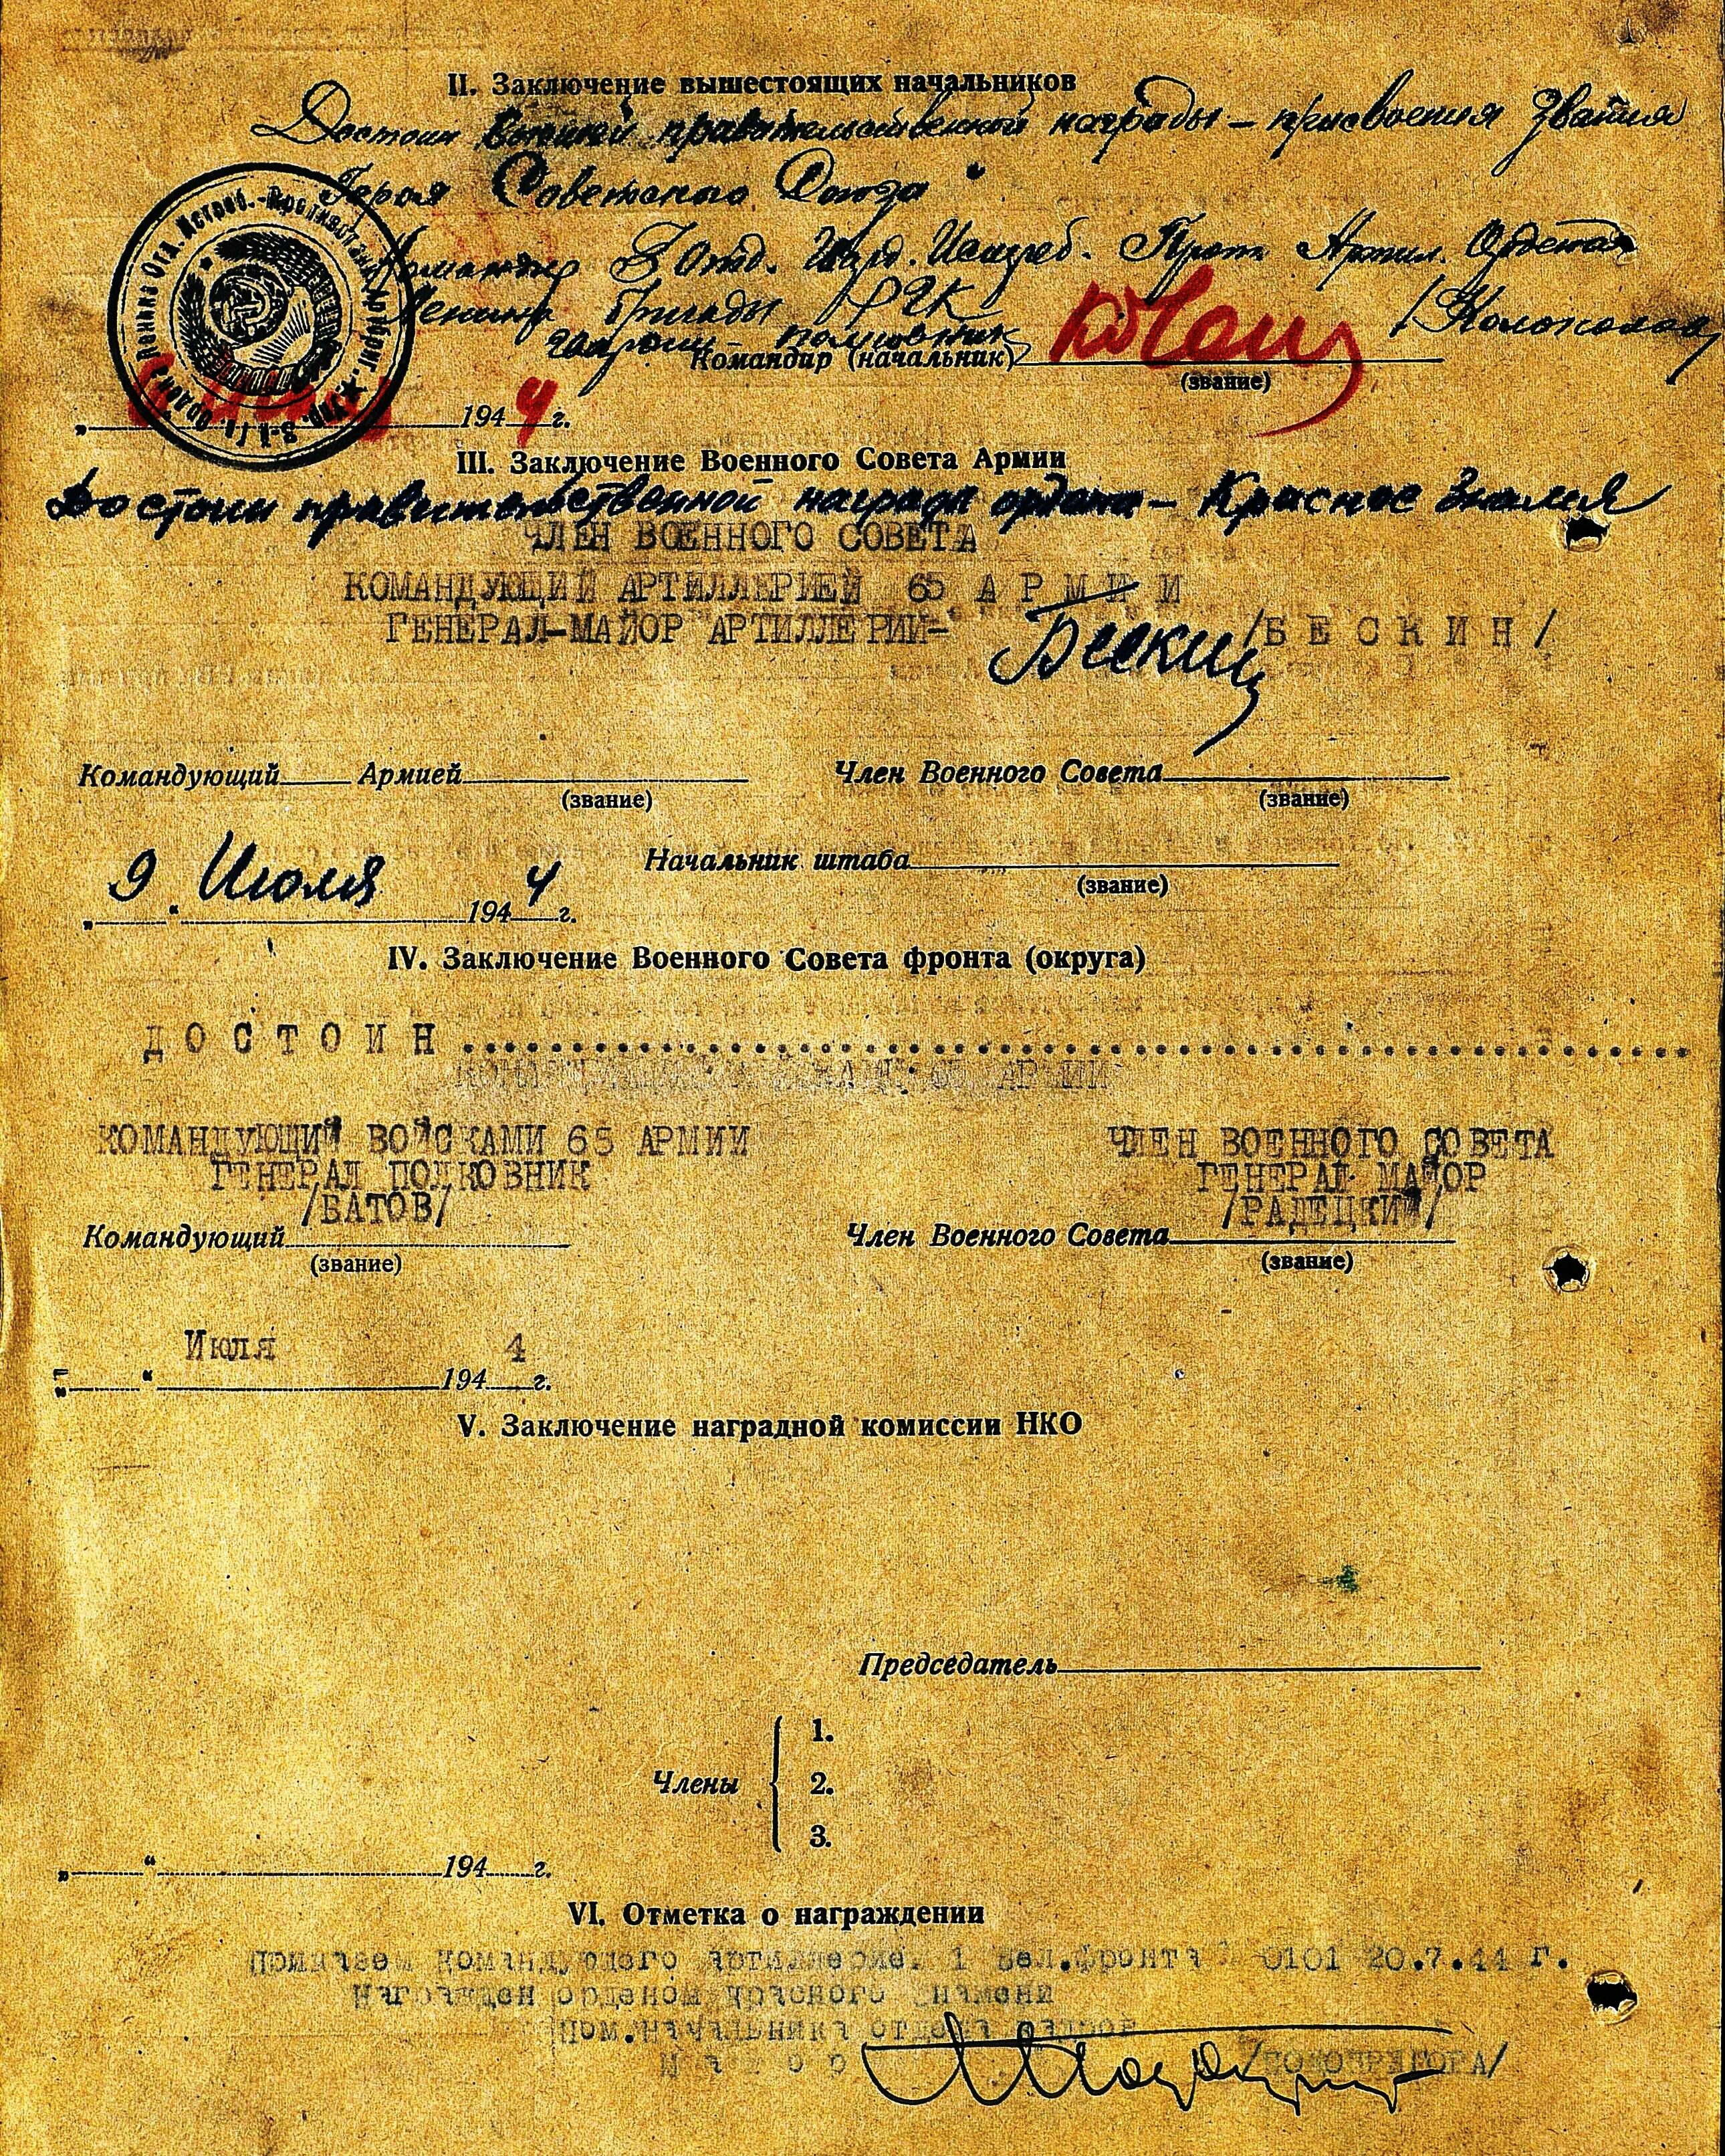 II. Заключение вышестоящих начальников
Достоин высшей правительственной награды – присвоения Звания
Героя Советского Союза"
Командир 3 Отд. Истреб. Арт. Ордена
Ленина бригады РГК
гвардии полковник /Колоколов
Командир (начальник)
(звание)
194 4 г.
III. Заключение Военного Совета Армии
Достоин правительственной награды ордена – Красное Знамя
ЧЛЕН ВОЕННОГО СОВЕТА
КОМАНДУЮЩИЙ АРТИЛЛЕРИЕЙ 65 А Р М И И
ГЕНЕРАЛ-МАЙОР АРТИЛЛЕРИИ- Бескин /Б Е С К И Н/
Командующий Армией Член Военного Совета
(звание) (звание)
Начальник штаба
(звание)
„ 9 “ Июля 194 4 г.
IV. Заключение Военного Совета фронта (округа)
Д О С Т О И Н
КОМАНДУЮЩИЙ ВОЙСКАМИ 65 АРМИИ ЧЛЕН ВОЕННОГО СОВЕТА
ГЕНЕРАЛ ПОЛКОВНИК ГЕНЕРАЛ МАЙОР
/БАТОВ/ /РАДЕЦКИЙ/
Командующий Член Военного Совета
(звание) (звание)
„ “ Июля 194 4 г.
V. Заключение наградной комиссии НКО
Председатель
Члены
1.
2.
3.
„ “ 194 г.
VI. Отметка о награждении
Приказом Командующего артиллерией 1 Бел.фронта 0101 20.7.44 г.
Награжден орденом Красного Знамени
Пом.Начальника отдела кадров
М а й о р